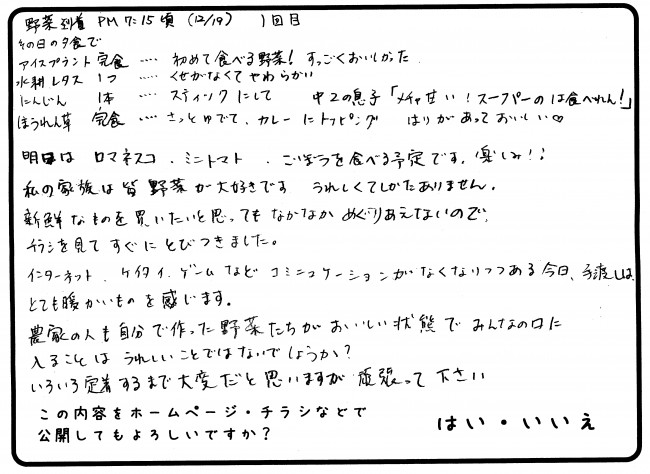 野菜到着 PM 7:15頃 (12/19) 1回目
その日の夕食で
アイスプラント 完食 ‥‥ 初めて食べる野菜! すっごくおいしかった
水耕レタス 1つ ‥‥ くせがなくてやわらかい
にんじん 1本 ‥‥ スティックにして 中2の息子「メチャ甘い!スーパーのは食べれん!」
ほうれん草 完食 ‥‥ さっとゆでて、カレーにトッピング はりがあっておいしい♡
明日は ロマネスコ、ミニトマト、ごぼうを食べる予定です。楽しみ!!
私の家族は皆野菜が大好きです うれしくてしかたありません。
新鮮なものを買いたいと思ってもなかなかめぐりあえないので、
チラシを見てすぐにとびつきました。
インターネット、ケイタイ、ゲームなどコミニュケーションがなくなりつつある今日、手渡しは
とても暖かいものを感じます。
農家の人も自分で作った野菜たちがおいしい状態でみんなの口に
入ることはうれしいことではないでしょうか?
いろいろ定着するまで大変だと思いますが頑張って下さい
この内容をホームページ・チラシなどで
公開してもよろしいですか? はい・いいえ